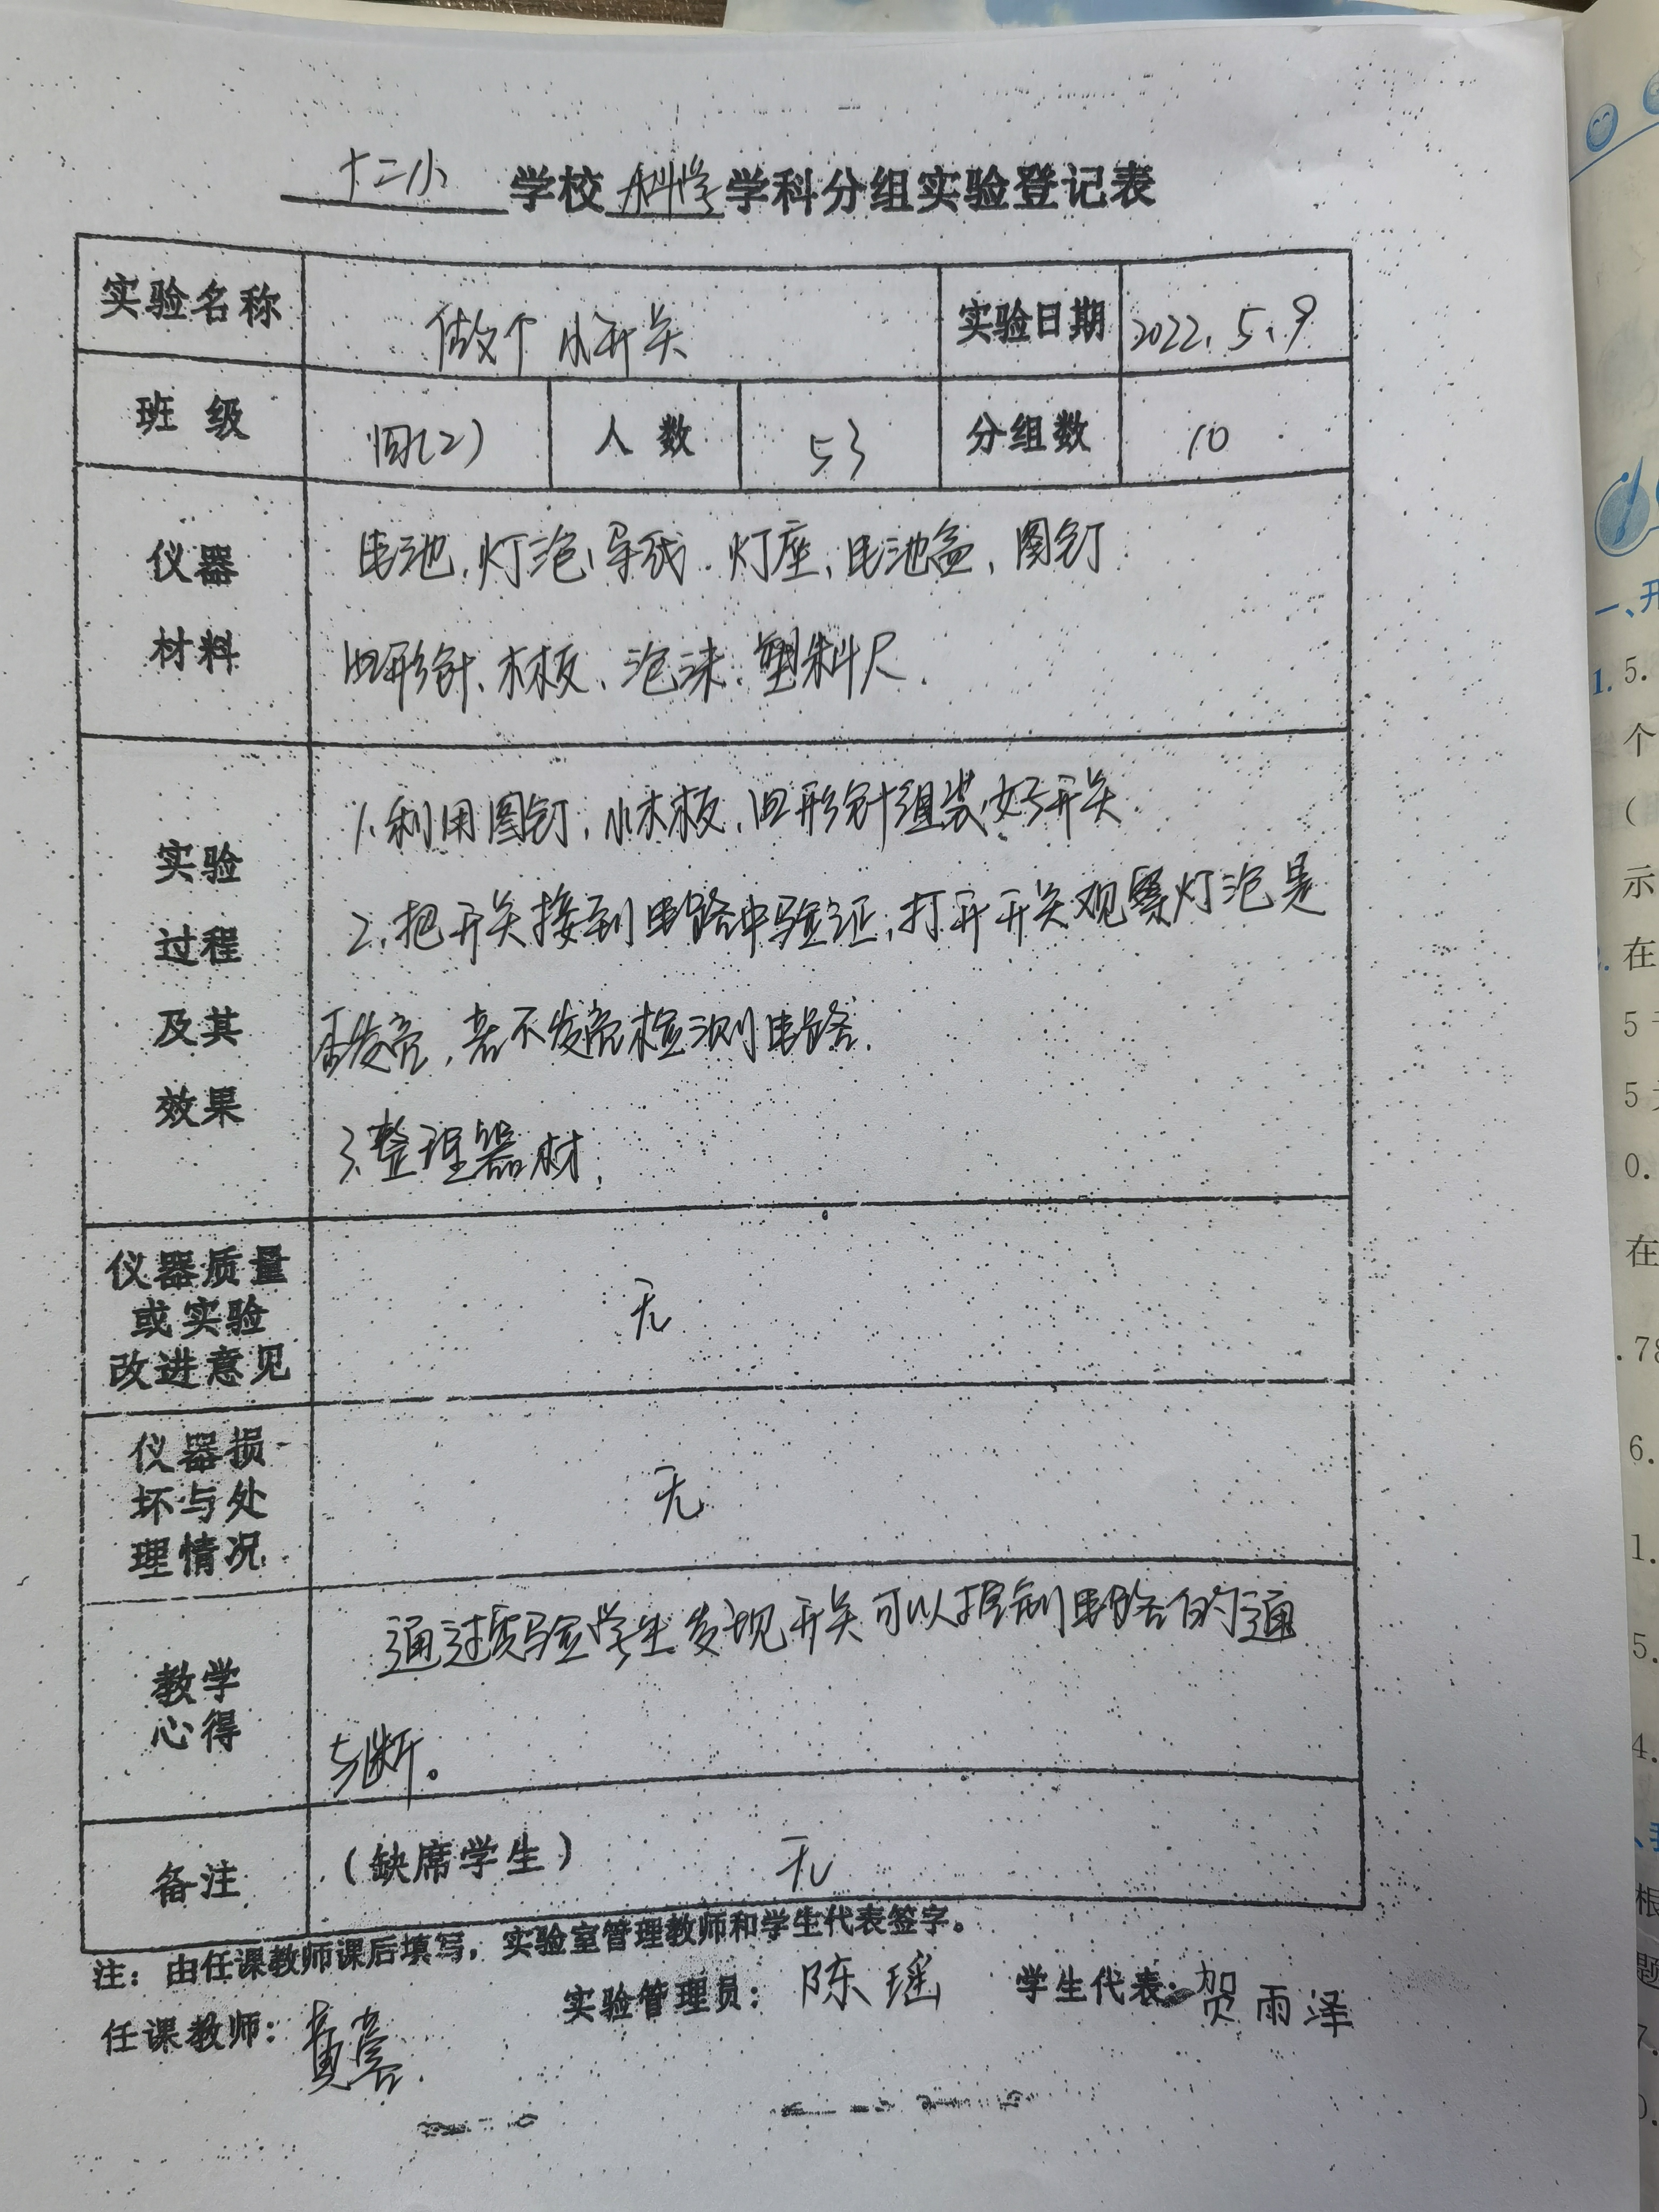 十二小 学校 科学 学科分组实验登记表
实验名称 做个小开关 实验日期 2022.5.9
班级 四(2) 人数 53 分组数 10
仪器
材料
电池、灯泡、导线、灯座、电池盒、图钉
回形针、木板、泡沫、塑料尺.
实验
过程
及其
效果
1、利用图钉、小木板、回形针组装好开关.
2、把开关接到电路中验证,打开开关观察灯泡是
否发亮,若不发亮检测电路.
3、整理器材.
仪器质量
或实验
改进意见
无
仪器损
坏与处
理情况
无
教学
心得
通过实验学生发现开关可以控制电路的通
与断。
备注 (缺席学生) 无
注:由任课教师课后填写,实验室管理教师和学生代表签字。
任课教师: 实验管理员:陈瑶 学生代表:贺雨泽
一、开
1. 5.
个
(
示
在
5
5
0.
在
.78
6.
1.
5.
4.
根
题
7.
0.